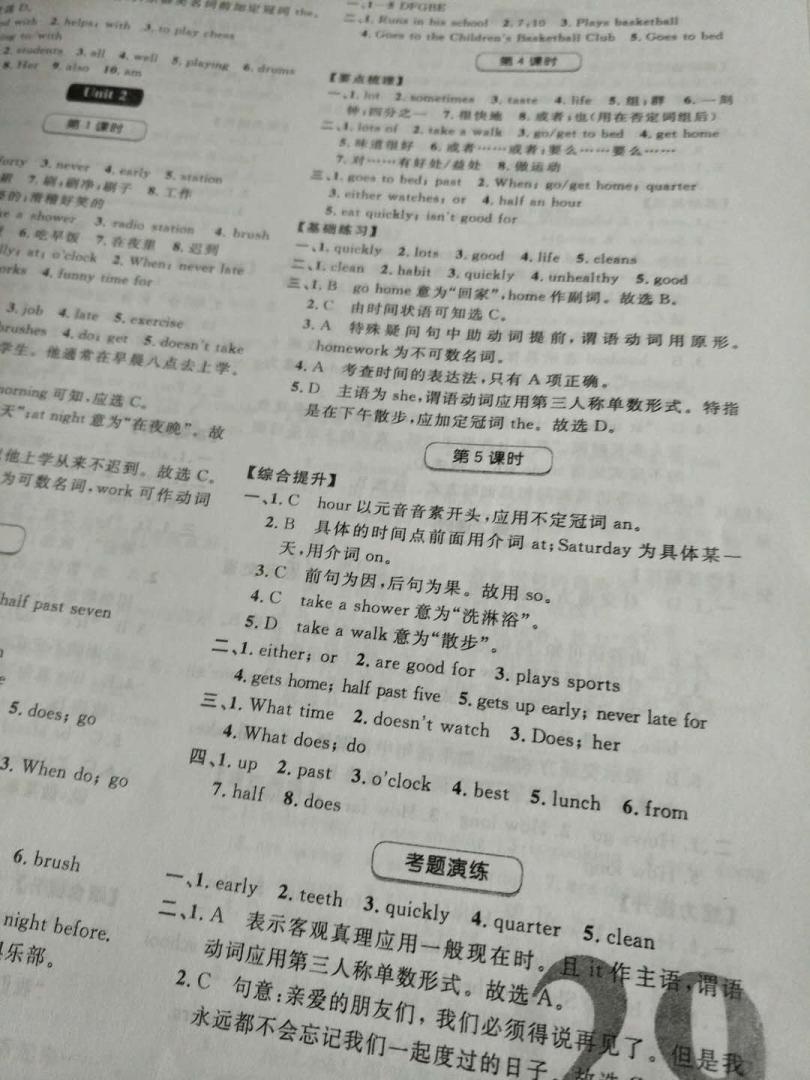 各类名词前加定冠词 the。
选 D。
with 2. helps; with 3. to play chess
to with
2. students 3. all 4. well 5. playing 6. drums
8. Her 9. also 10. am
Unit 2
第1课时
forty 3. never 4. early 5. station
7. 刷;刷净;刷子 8. 工作
的;滑稽好笑的
a shower 3. radio station 4. brush
6. 吃早饭 7. 在夜里 8. 迟到
at; o'clock 2. When; never late
4. funny time for
3. job 4. late 5. exercise
brushes 4. do; get 5. doesn't take
学生。他通常在早晨八点去上学。
morning 可知,应选 C。
天";at night 意为"在夜晚"。故
他上学从来不迟到。故选 C。
为可数名词,work 可作动词
half past seven
5. does; go
3. When do; go
6. brush
night before.
俱乐部。
一、1—5 DFGBE
二、1. Runs in his school 2. 7:10 3. Plays basketball
4. Goes to the Children's Basketball Club 5. Goes to bed
第4课时
【要点梳理】
一、1. lot 2. sometimes 3. taste 4. life 5. 组;群 6. 一刻
钟;四分之一 7. 很快地 8. 或者;也(用在否定词组后)
二、1. lots of 2. take a walk 3. go/get to bed 4. get home
5. 味道很好 6. 或者……或者;要么……要么……
7. 对……有好处/益处 8. 做运动
三、1. goes to bed; past 2. When; go/get home; quarter
3. either watches; or 4. half an hour
5. eat quickly; isn't good for
【基础练习】
一、1. quickly 2. lots 3. good 4. life 5. cleans
二、1. clean 2. habit 3. quickly 4. unhealthy 5. good
三、1. B go home 意为"回家",home 作副词。故选 B。
2. C 由时间状语可知选 C。
3. A 特殊疑问句中助动词提前,谓语动词用原形。
homework 为不可数名词。
4. A 考查时间的表达法,只有 A 项正确。
5. D 主语为 she,谓语动词应用第三人称单数形式。特指
是在下午散步,应加定冠词 the。故选 D。
第5课时
【综合提升】
一、1. C hour 以元音音素开头,应用不定冠词 an。
2. B 具体的时间点前面用介词 at;Saturday 为具体某一
天,用介词 on。
3. C 前句为因,后句为果。故用 so。
4. C take a shower 意为"洗淋浴"。
5. D take a walk 意为"散步"。
二、1. either; or 2. are good for 3. plays sports
4. gets home; half past five 5. gets up early; never late for
三、1. What time 2. doesn't watch 3. Does; her
4. What does; do
四、1. up 2. past 3. o'clock 4. best 5. lunch 6. from
7. half 8. does
考题演练
一、1. early 2. teeth 3. quickly 4. quarter 5. clean
二、1. A 表示客观真理应用一般现在时。且 it 作主语,谓语
动词应用第三人称单数形式。故选 A。
2. C 句意:亲爱的朋友们,我们必须得说再见了。但是我
永远都不会忘记我们一起度过的日子。故选
29